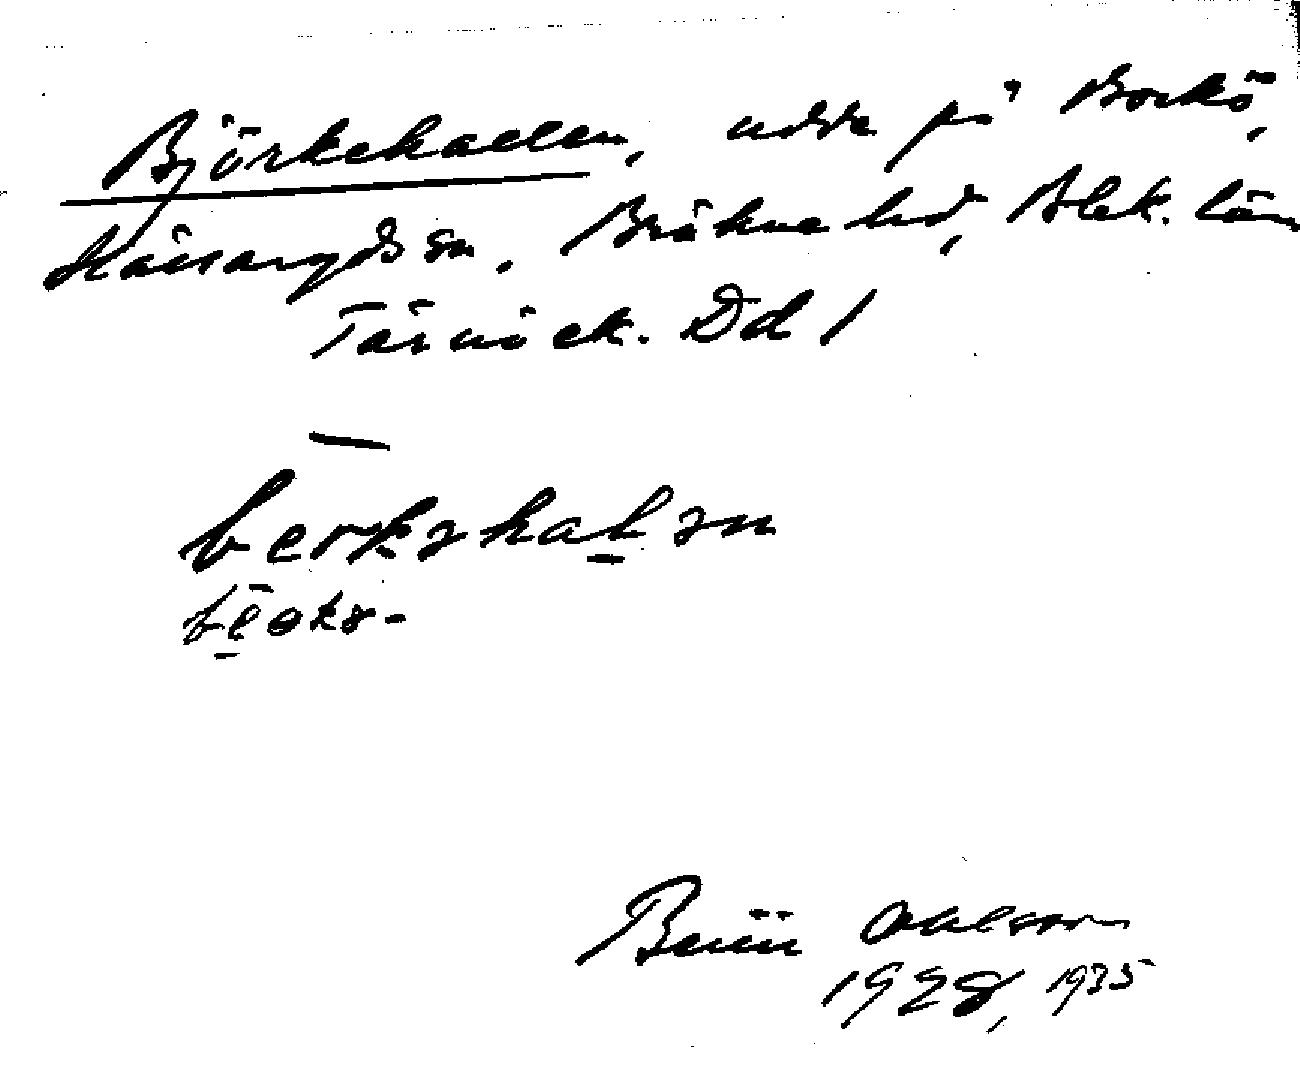 Björkehallen, udde på Bockö,
Hällaryds sn, Bräkne hd, Blek. län
Tärnö ek. Dd 1
—
berkahalan
Ohlsson
1928, 1935